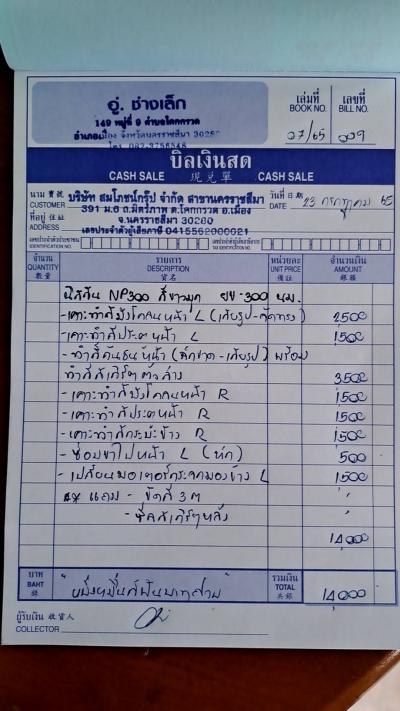 อู่. ช่างเล็ก
149 หมู่ที่ 9 ตำบลโคกกรวด
อำเภอเมือง จังหวัดนครราชสีมา 30280
โทร 082-3756548
เล่มที่ BOOK NO. 07/65
เลขที่ BILL NO. 009
บิลเงินสด
CASH SALE 現兌單 CASH SALE
นาม CUSTOMER บริษัท สมโภชน์กรุ๊ป จำกัด สาขานครราชสีมา วันที่ DATE 23 กรกฎาคม 65
ที่อยู่ ADDRESS 391 ม.6 ถ.มิตรภาพ ต.โคกกรวด อ.เมือง
จ.นครราชสีมา 30280
เลขประจำตัวผู้เสียภาษี 0415562000021
จำนวน รายการ หน่วยละ จำนวนเงิน
QUANTITY DESCRIPTION UNIT PRICE AMOUNT
數量 貨名 備註 銀額
นิสสัน NP300 สีขาวมุก -300 นม.
-เคาะทำสีบังโคลนหน้า L 2500
-เคาะทำสีประตูหน้า L 1500
-ทำสีกันชนหน้า พร้อม
ทำสีสเกิร์ต ตัวล่าง 3500
-เคาะทำสีบังโคลนหน้า R 1500
-เคาะทำสีประตูหน้า R 1500
-เคาะทำสีกระบะข้าง R 1500
-ซ่อมขาไฟหน้า L (หัก) 500
-เปลี่ยนมอเตอร์กระจกมองข้าง L 1500
แถม - ขัดสี 3 M "
- "
14,000
บาท BAHT หนึ่งหมื่นสี่พันบาทถ้วน รวมเงิน TOTAL 共銀 14,000
ผู้รับเงิน 收貨人
COLLECTOR